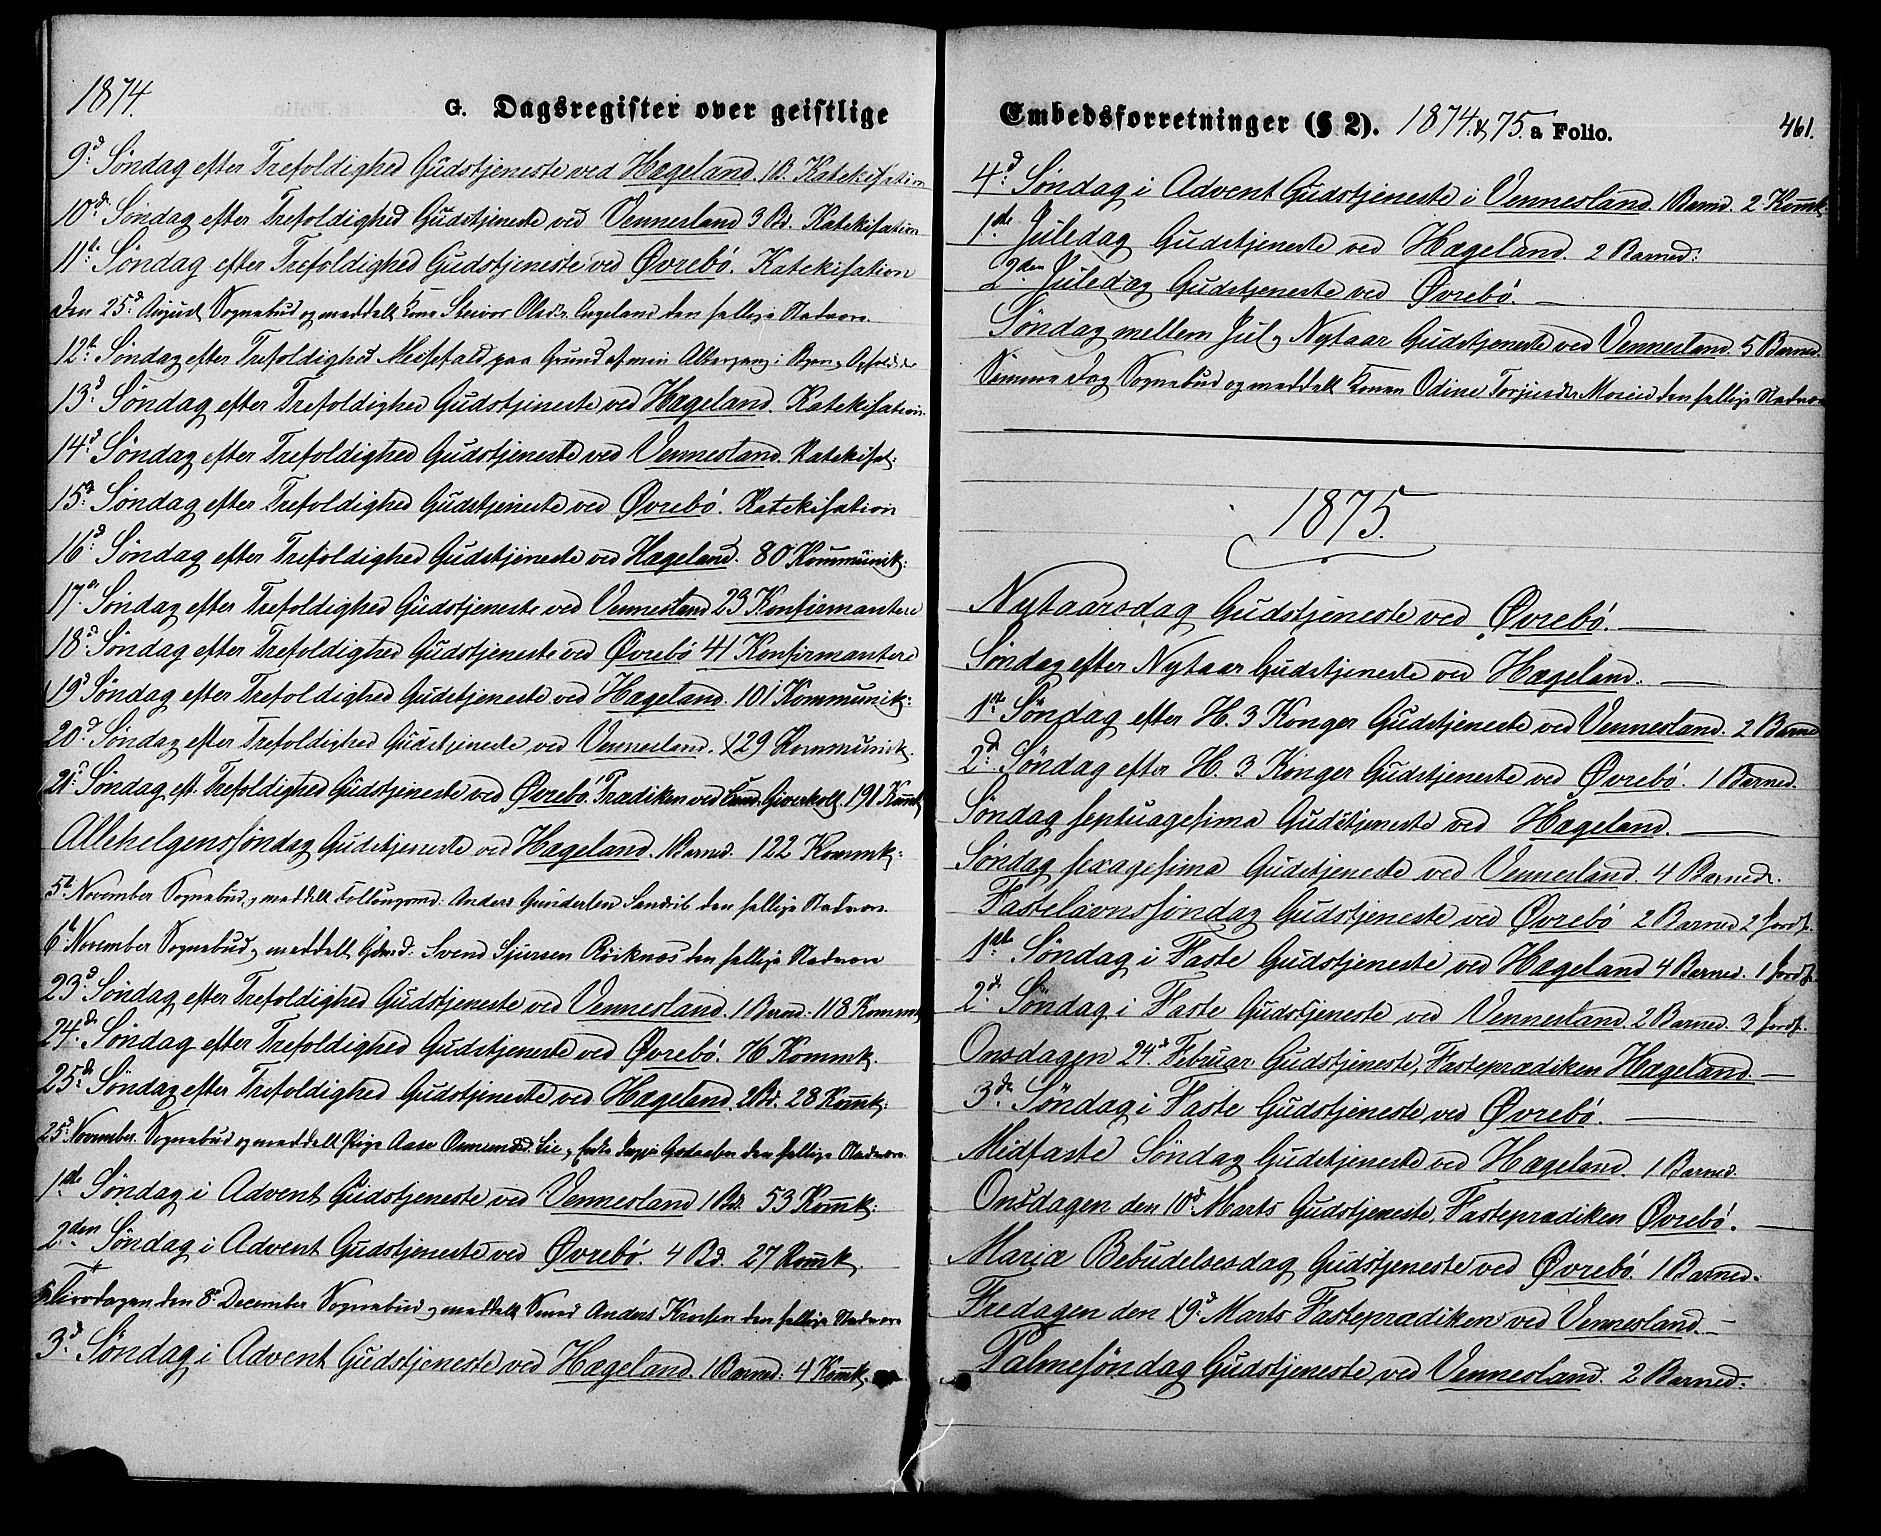 1874.
G. Dagsregister over geistlige
9d: Søndag efter Trefoldighed Gudstjeneste ved Hægeland. 1 B. Katekisation
10d: Søndag efter Trefoldighed Gudstjeneste ved Vennesland 3 Bd. Katekisation
11te: Søndag efter Trefoldighed Gudstjeneste ved Øvrebö. Katekisation
Den 25d: August Sognebud og meddelt Kone Steivor Olsdr. Engeland den hellige Nadvere.
12te: Søndag efter Trefoldighed Messefald paa Grund af min
13d: Søndag efter Trefoldighed Gudstjeneste ved Hægeland. Katekisation
14d: Søndag efter Trefoldighed Gudstjeneste ved Vennesland. Katekisat:
15d: Søndag efter Trefoldighed Gudstjeneste ved Øvrebö. Katekisation
16d: Søndag efter Trefoldighed Gudstjeneste ved Hægeland. 80 Kommunik:
17de: Søndag efter Trefoldighed Gudstjeneste ved Vennesland 23 Konfirmantere
18d: Søndag efter Trefoldighed Gudstjeneste ved Øvrebö 41 Konfirmantere
19d Søndag efter Trefoldighed Gudstjeneste ved Hægeland. 101 Kommunik:
20d: Søndag efter Trefoldighed Gudstjeneste ved Vennesland. 129 Kommunik.
21d: Søndag eft. Trefoldighed Gudstjeneste ved Øvrebö. Prædiken ved Cand. 191 Komk
Allehelgenssöndag Gudstjeneste ved Hægeland. 1 Barned. 122 Kommk:
5te November Sognebud og meddelt Anders Gundersen den hellige Nadvere.
6te November Sognebud og meddelt Gdmd: Svend Sjursen Röiknes den hellige Nadvere
23d: Søndag efter Trefoldighed Gudstjeneste ved Vennesland. 1 Barned: 118 Kommk
24de: Søndag efter Trefoldighed Gudstjeneste ved Øvrebö. 76 Kommk.
25de: Søndag efter Trefoldighed Gudstjeneste ved Hægeland. 2 Bd. 28 Komk:
25d: November. Sognebud og meddelt Pige Aase Lie og Enke den hellige Nadvere.
1ste Søndag i Advent Gudstjeneste ved Vennesland 1 Bd. 53 Komk:
2den Søndag i Advent Gudstjeneste ved Øvrebö. 4 Bd. 27 Komk.
Tirsdagen den 8d: December Sognebud og meddelt Smed Anders den hellige Nadvere
3d: Søndag i Advent Gudstjeneste ved Hægeland. 1 Barned: 4 Komk.
Embedsforretninger (§ 2). 1874 & 75. a Folio. 461.
4d: Søndag i Advent Gudstjeneste i Vennesland. 1 Barned. 2 Komk
1ste: Juledag Gudstjeneste ved Hægeland. 2 Barned:
2den Juledag Gudstjeneste ved Øvrebö. —
Søndag mellem Jul og Nytaar Gudstjeneste ved Vennesland. 5 Barned.
Samme Dag Sognebud og meddelt Konen Odine Torjusdr. Moseid den hellige Nadvere
1875.
Nytaarsdag Gudstjeneste ved Øvrebö. —
Søndag efter Nytaar Gudstjeneste ved Hægeland. —
1ste Søndag efter H. 3 Konger Gudstjeneste ved Vennesland. 2 Barned
2d: Søndag efter H. 3 Konger Gudstjeneste ved Øvrebö. 1 Barned.
Søndag septuagesima Gudstjeneste ved Hægeland. —
Søndag sexagesima Gudstjeneste ved Vennesland 4 Barned.
Fastelavnssöndag Gudstjeneste ved Øvrebö 2 Barned 2 Jordf.
1ste Søndag i Faste Gudstjeneste ved Hægeland 4 Barned. 1 Jordf.
2d: Søndag i Faste Gudstjeneste ved Vennesland 2 Barned. 3 Jordf.
Onsdagen 24d: Februar Gudstjeneste, Fasteprædiken Hægeland —
3de: Søndag i Faste Gudstjeneste ved Øvrebö. —
Midfaste Søndag Gudstjeneste ved Hægeland. 1 Barned.
Onsdagen den 10d: Marts Gudstjeneste, Fasteprædiken Øvrebö. —
Mariæ Bebudelsesdag Gudstjeneste ved Øvrebö. 1 Barned.
Fredagen den 19d: Marts Fasteprædiken ved Vennesland. —
Palmesöndag Gudstjeneste ved Vennesland. 2 Barned: